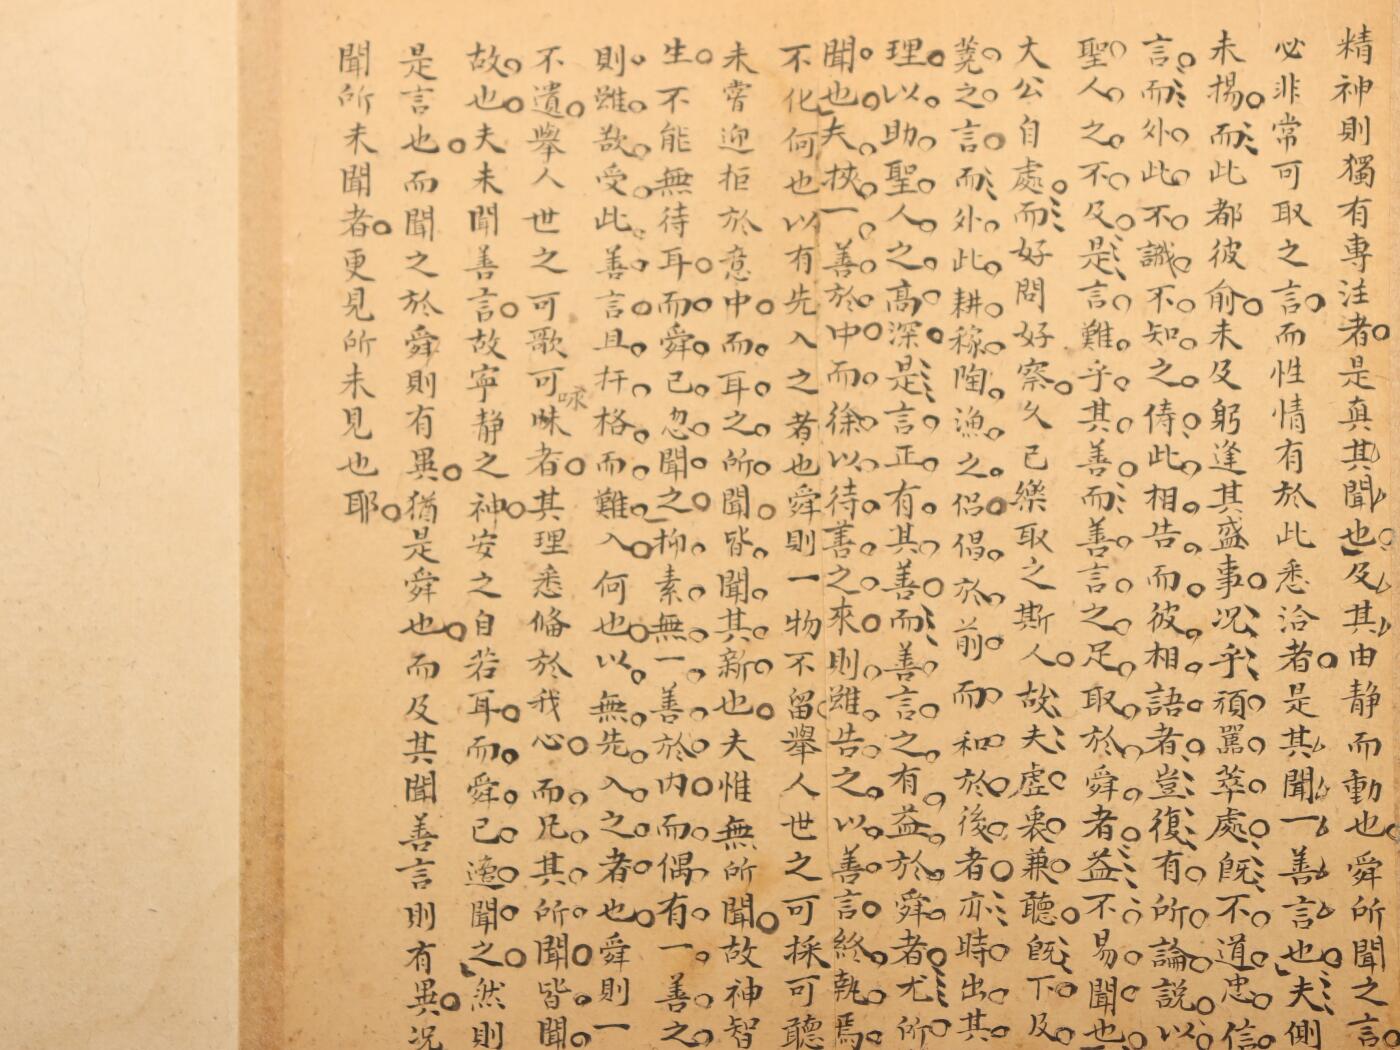 精神則獨有專注者是真其聞也及其由靜而動也舜所聞之言
必非常可取之言而性情有於此悉洽者是其聞一善言也夫側
未揚而此都彼俞未及躬逢其盛事况乎頑嚚萃處旣不道忠信
言而外此不識不知之儔此相告而彼相語者豈復有所論說以
聖人之不及是言難乎其善而善言之足取於舜者益不易聞也
大公自處而好問好察久已樂取之斯人故夫虛衷兼聽旣下及
蕘之言而外此耕稼陶漁之侣倡於前而和於後者亦時出其
理以助聖人之高深是言正有其善而善言之有益於舜者尤所
聞也夫挾一善於中而徐以待善之來則雖告之以善言終執焉
不化何也以有先入之者也舜則一物不留舉人世之可採可聽
未嘗迎拒於意中而耳之所聞皆聞其新也夫惟無所聞故神智
生不能無待耳而舜已忽聞之抑素無一善於内而偶有一善之
則雖敎受此善言且扞格而難入何也以無先入之者也舜則一
不遺舉人世之可歌可咏者其理悉備於我心而凡其所聞皆聞
故也夫未聞善言故寧静之神安之自若耳而舜已邃聞之然則
是言也而聞之於舜則有異猶是舜也而及其聞善言則有異况
聞所未聞者更見所未見也耶